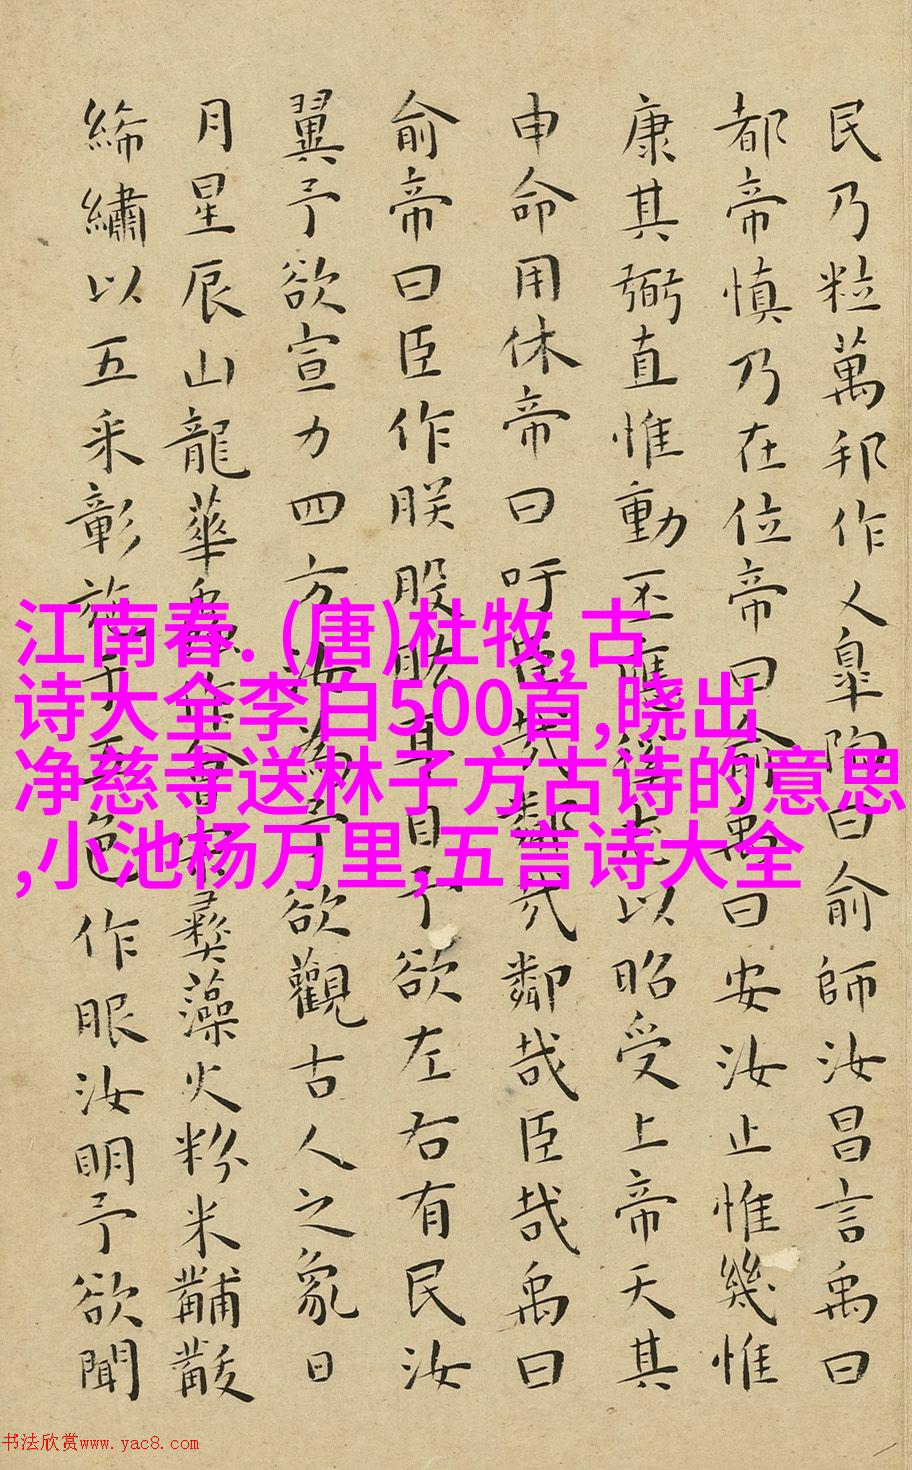 民乃粒萬邦作乂皐陶曰俞師汝昌言禹曰
都帝慎乃在位帝曰俞禹曰安汝止惟幾惟
康其弼直惟動丕應徯志以昭受上帝天其
申命用休帝曰吁臣哉鄰哉鄰哉臣哉禹曰
俞帝曰臣作朕股肱耳目予欲左右有民汝
翼予欲宣力四方汝為予欲觀古人之象日
月星辰山龍華蟲作會宗彝藻火粉米黼黻
絺繡以五采彰施于五色作服汝明予欲聞
江南春. (唐)杜牧,古
诗大全李白500首,晓出
净慈寺送林子方古诗的意思
,小池杨万里,五言诗大全
书法欣赏www.yac8.com